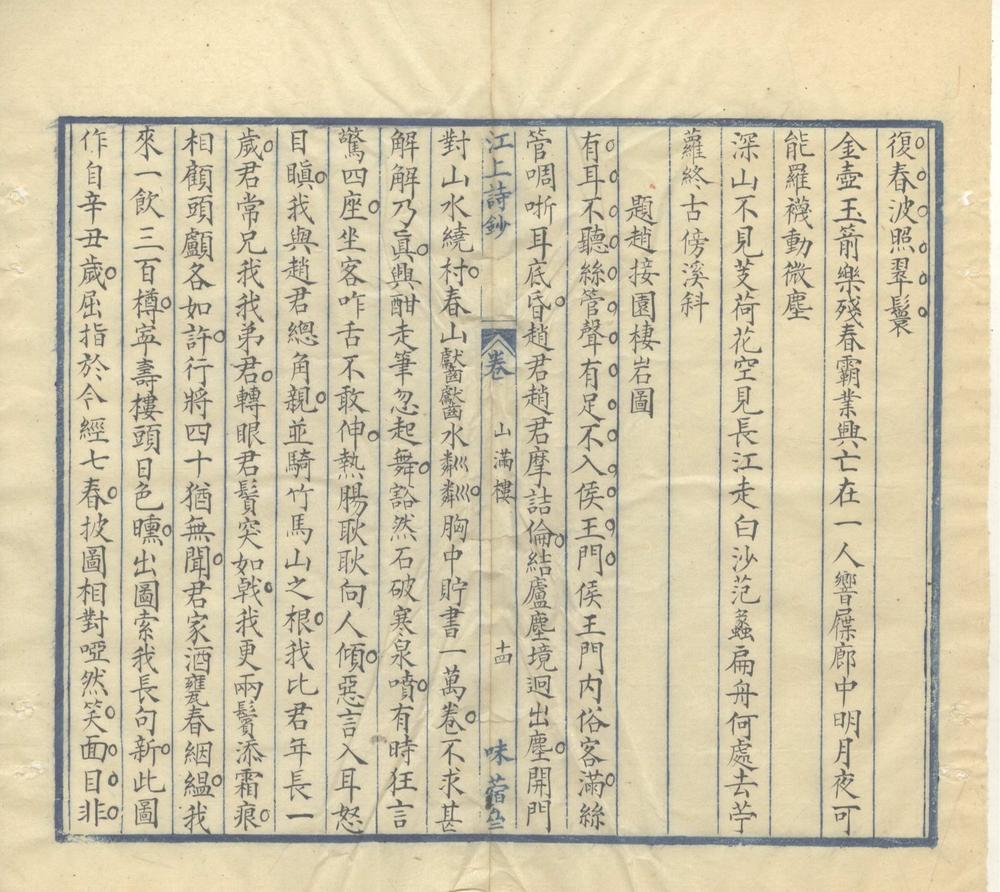 復春波照翠鬟
金壺玉箭樂殘春霸業興亡在一人響屧廊中明月夜可
能羅襪動微塵
深山不見芰荷花空見長江走白沙范蠡扁舟何處去苧
蘿終古傍溪斜
題趙接園棲岩圖
有耳不聽絲管聲有足不入侯王門侯王門内俗客滿絲
管啁哳耳底昏趙君趙君摩詰倫結廬塵境迥出塵開門
江上詩鈔
卷
山滿樓
十四
味菭
對山水繞村春山巘巘水粼粼胸中貯書一萬卷不求甚
解解乃眞興酣走筆忽起舞豁然石破寒泉噴有時狂言
驚四座坐客咋舌不敢伸熱腸耿耿向人傾惡言入耳怒
目瞋我與趙君總角親並騎竹馬山之根我比君年長一
歲君常兄我我弟君轉眼君鬢突如戟我更兩鬢添霜痕
相顧頭顱各如許行將四十猶無聞君家酒甕春絪縕我
來一飲三百樽寍壽樓頭日色曛出圖索我長句新此圖
作自辛丑歲屈指於今經七春披圖相對啞然笑面目非